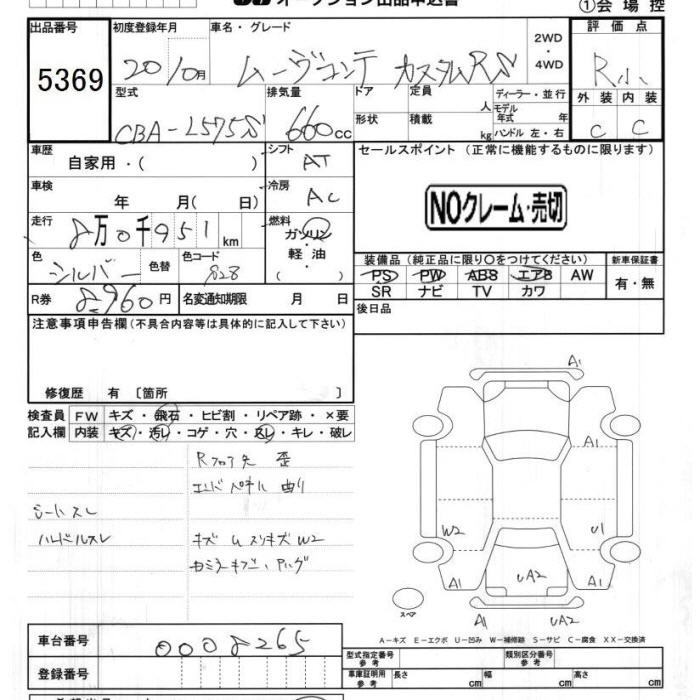 オークション出品申込書
①会場控
出品番号 初度登録年月 車名・グレード 2WD ・ 4WD 評価点
5369
20/0月 ムーヴコンテ カスタムRS R
型式 排気量 ドア 定員 ディーラー・並行 外装 内装
CBA-L575S 660cc 形状 積載 人 kg モデル年式 年 ハンドル 左・右 C C
車歴 シフト セールスポイント (正常に機能するものに限ります)
自家用・( ) AT
車検 冷房
年 月( 日) AC NOクレーム・売切
走行 燃料
8万0千951km ガソリン・軽油( )
色 色替 色コード 装備品(純正品に限り○をつけてください) 新車保証書
シルバー S28 PS PW ABS エアB AW 有・無
R券 8960円 名変通知期限 月 日 SR ナビ TV カワ
注意事項申告欄(不具合内容等は具体的に記入して下さい) 後日品
修復歴 有 〔箇所 〕
検査員 FW キズ・飛石・ヒビ割・リペア跡・×要
記入欄 内装 キズ・汚レ・コゲ・穴・スレ・キレ・破レ
Rフロア先 歪
エンドパネル 曲り
シートスレ
ハンドルスレ キズ ムスリキズ W2
A1
A1
W2
U1
A1
UA2
A1
スペア
A1
UA2
A-キズ E-エクボ U-凹み W-補修跡 S-サビ C-腐食 XX-交換済
車台番号 0008265 型式指定番号 参考 類別区分番号 参考
登録番号 車庫証明用 参考 長さ cm 幅 cm 高さ cm